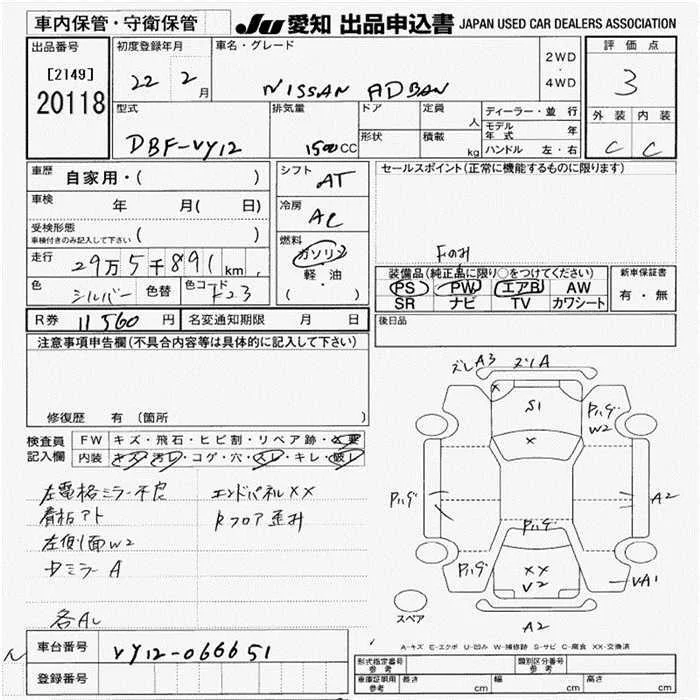 車内保管・守衛保管
JU 愛知 出品申込書 JAPAN USED CAR DEALERS ASSOCIATION
出品番号
[2149]
20118
初度登録年月
22 2 月
車名・グレード
NISSAN ADBAN
2WD
・
4WD
評価点
3
外装 内装
C C
型式
DBF-VY12
排気量
1500 CC
ドア
形状
定員 人
積載 kg
ディーラー・並行
モデル年式 年
ハンドル 左・右
車歴 自家用・( )
車検 年 月( 日)
受検形態
車検付きのみ記入して下さい ( )
走行 29万5千891 km
色 シルバー 色替 色コード F23
シフト AT
冷房 AC
燃料
ガソリン
・
軽・油
( )
セールスポイント(正常に機能するものに限ります)
Fのみ
装備品(純正品に限り○をつけてください)
PS PW エアB AW
SR ナビ TV カワシート
新車保証書
有・無
R券 11560 円 名変通知期限 月 日
後日品
注意事項申告欄(不具合内容等は具体的に記入して下さい)
修復歴 有(箇所 )
検査員
記入欄
FW キズ・飛石・ヒビ割・リペア跡・ 要
内装 キズ 汚レ・コゲ・穴・スレ・キレ・破レ
左電格ミラー不良 エンドパネルXX
看板アト Rフロア歪み
左側面W2
中ミラーA
各AL
ズレA3 ズリA
X
S1
Pハゲ
W2
X
Pハゲ
A2
Pハゲ
Pハゲ
XX
V2
VA1
A2
スペア
A-キズ E-エクボ U-凹み W-補修跡 S-サビ C-腐食 XX-交換済
車台番号 VY12-066651
登録番号
形式指定番号
参考
類別区分番号
参考
車庫証明用
参考
長さ cm 幅 cm 高さ cm